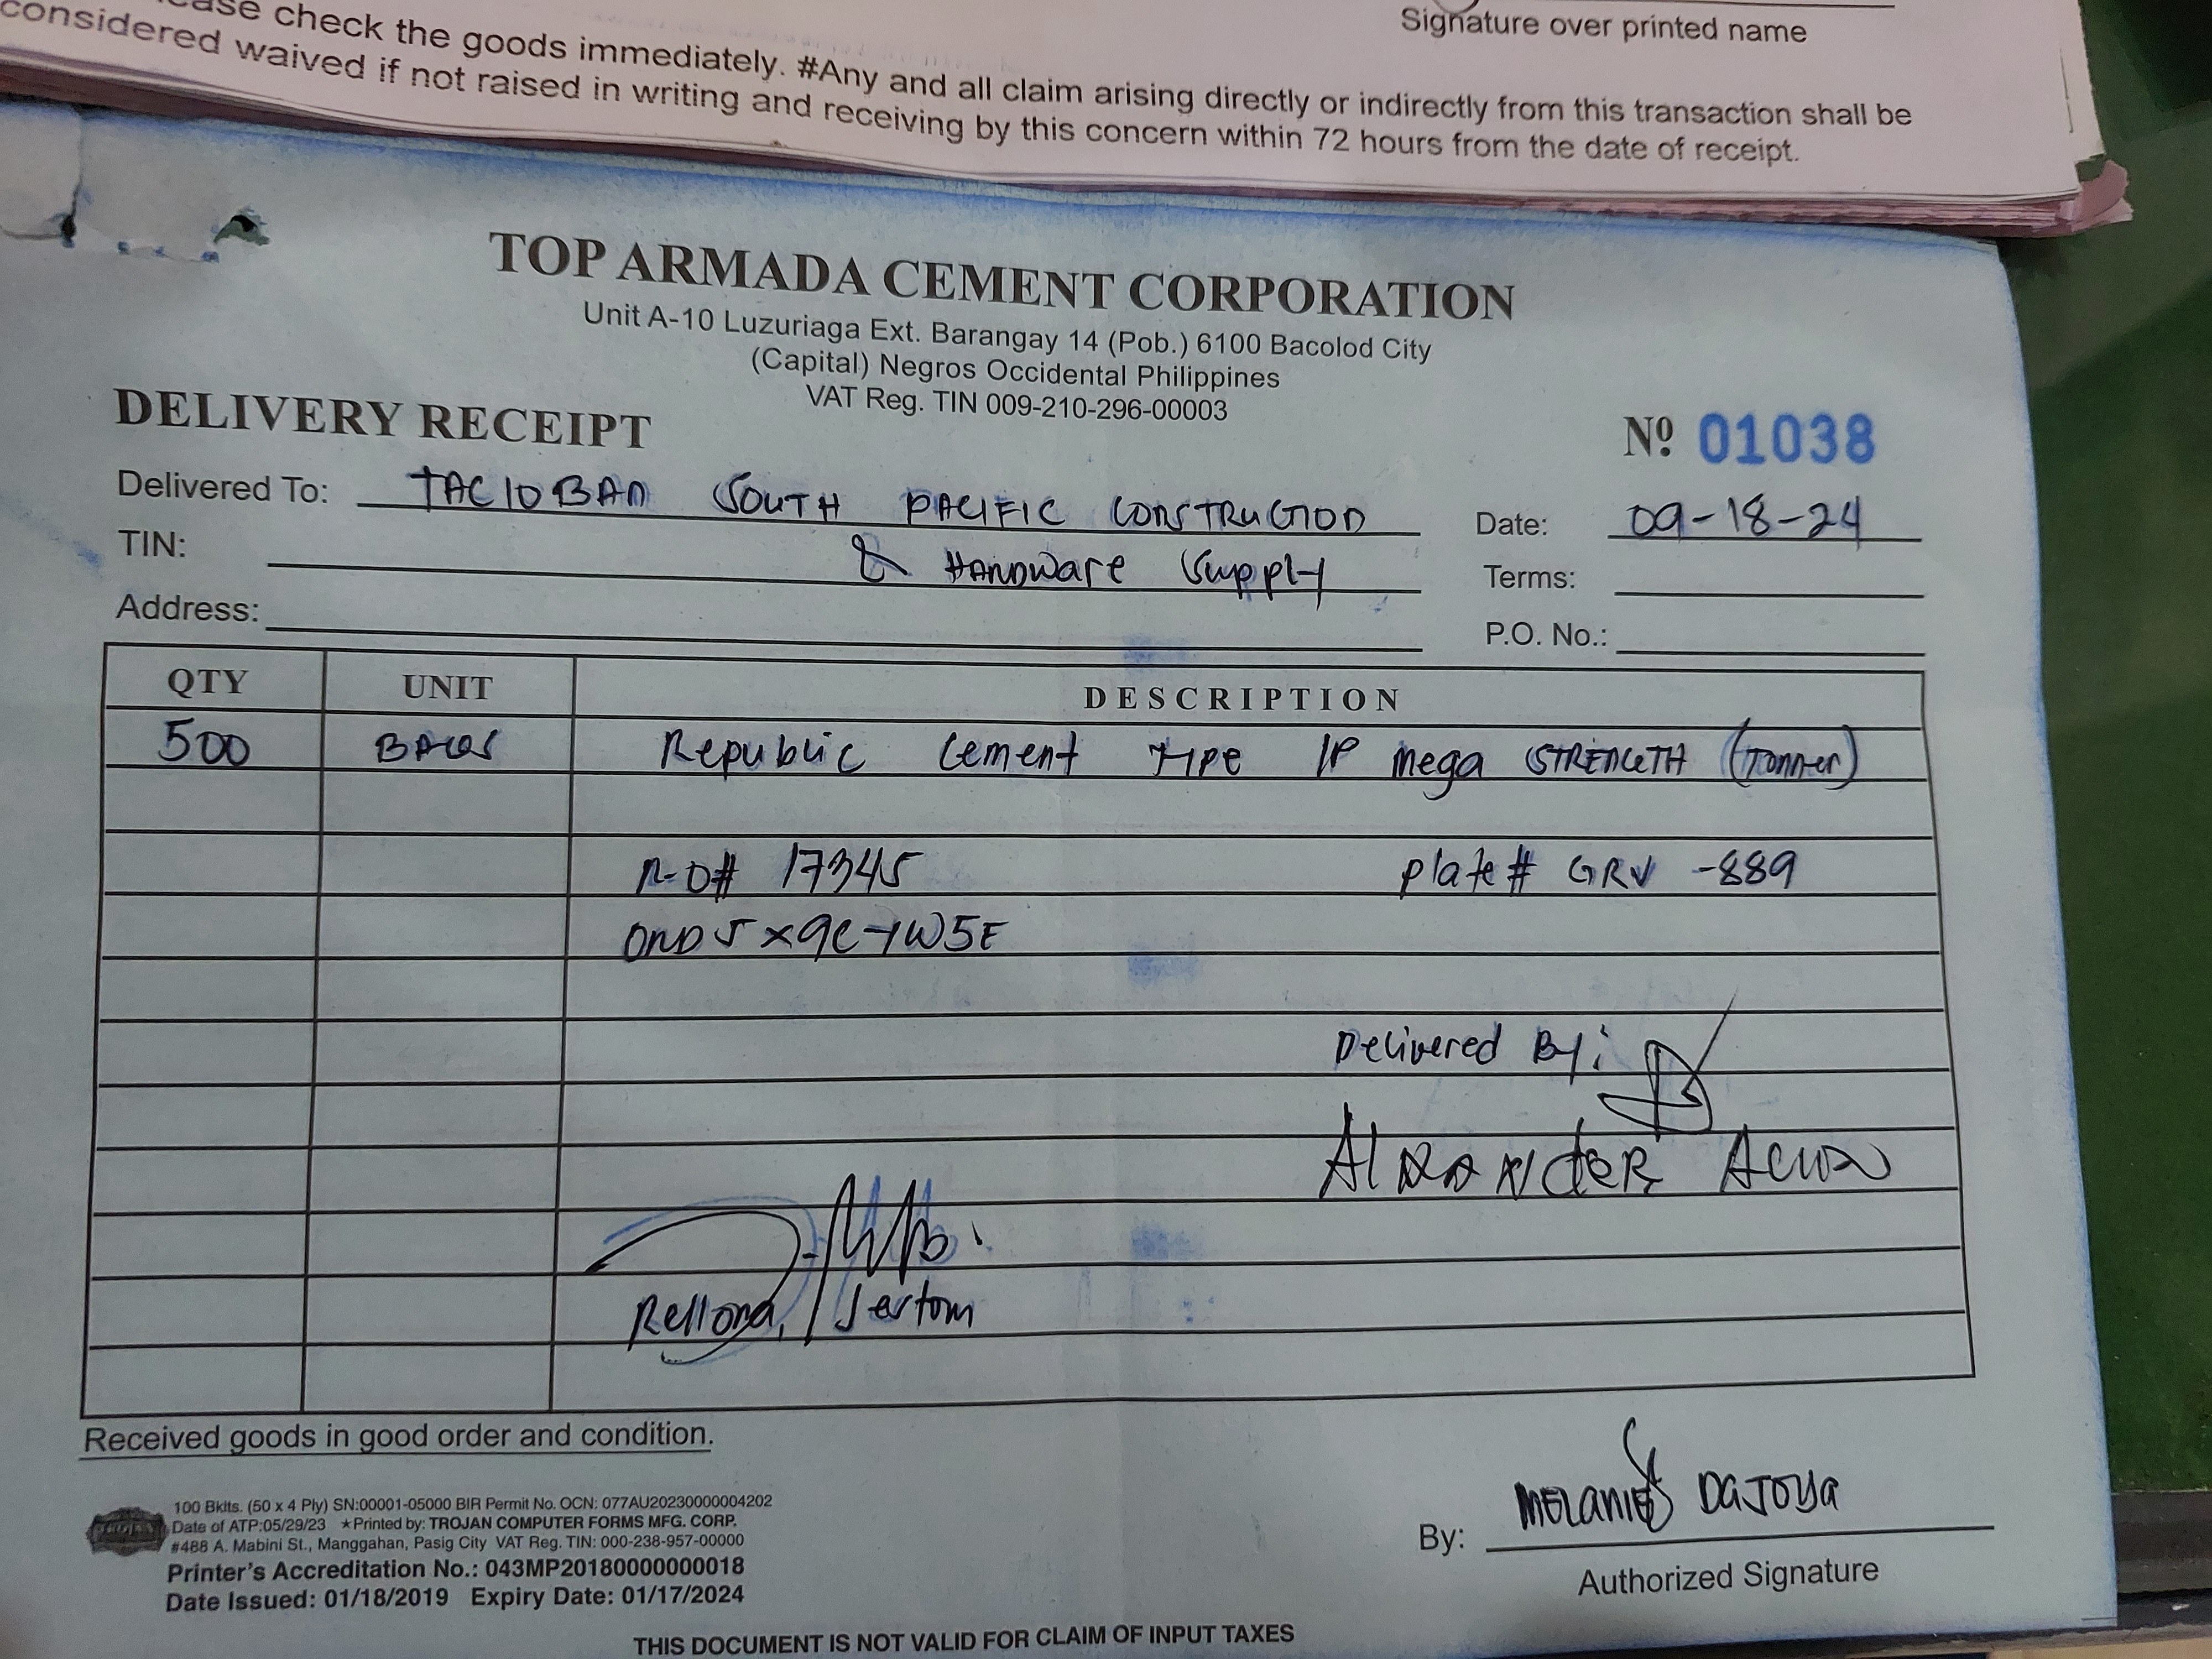 ase check the goods immediately. #Any and all claim arising directly or indirectly from this transaction shall be
onsidered waived if not raised in writing and receiving by this concern within 72 hours from the date of receipt.
Signature over printed name
TOP ARMADA CEMENT CORPORATION
Unit A-10 Luzuriaga Ext. Barangay 14 (Pob.) 6100 Bacolod City
(Capital) Negros Occidental Philippines
VAT Reg. TIN 009-210-296-00003
DELIVERY RECEIPT
Nº 01038
Delivered To: TACLOBAN SOUTH PACIFIC CONSTRUCTION
Date: 09-18-24
TIN: & HARDWare Supply
Terms:
Address:
P.O. No.:
QTY UNIT DESCRIPTION
500 BAGS Republic Cement TYPE 1P mega STRENGTH (Tonner)
R-O# 17345 plate# GRV -889
Delivered By:
Rellona, Jertom
Received goods in good order and condition.
100 Bklts. (50 x 4 Ply) SN:00001-05000 BIR Permit No. OCN: 077AU20230000004202
Date of ATP:05/29/23 ★Printed by: TROJAN COMPUTER FORMS MFG. CORP.
#488 A. Mabini St., Manggahan, Pasig City VAT Reg. TIN: 000-238-957-00000
Printer's Accreditation No.: 043MP20180000000018
Date Issued: 01/18/2019 Expiry Date: 01/17/2024
By: MELANIE DAJOYA
Authorized Signature
THIS DOCUMENT IS NOT VALID FOR CLAIM OF INPUT TAXES